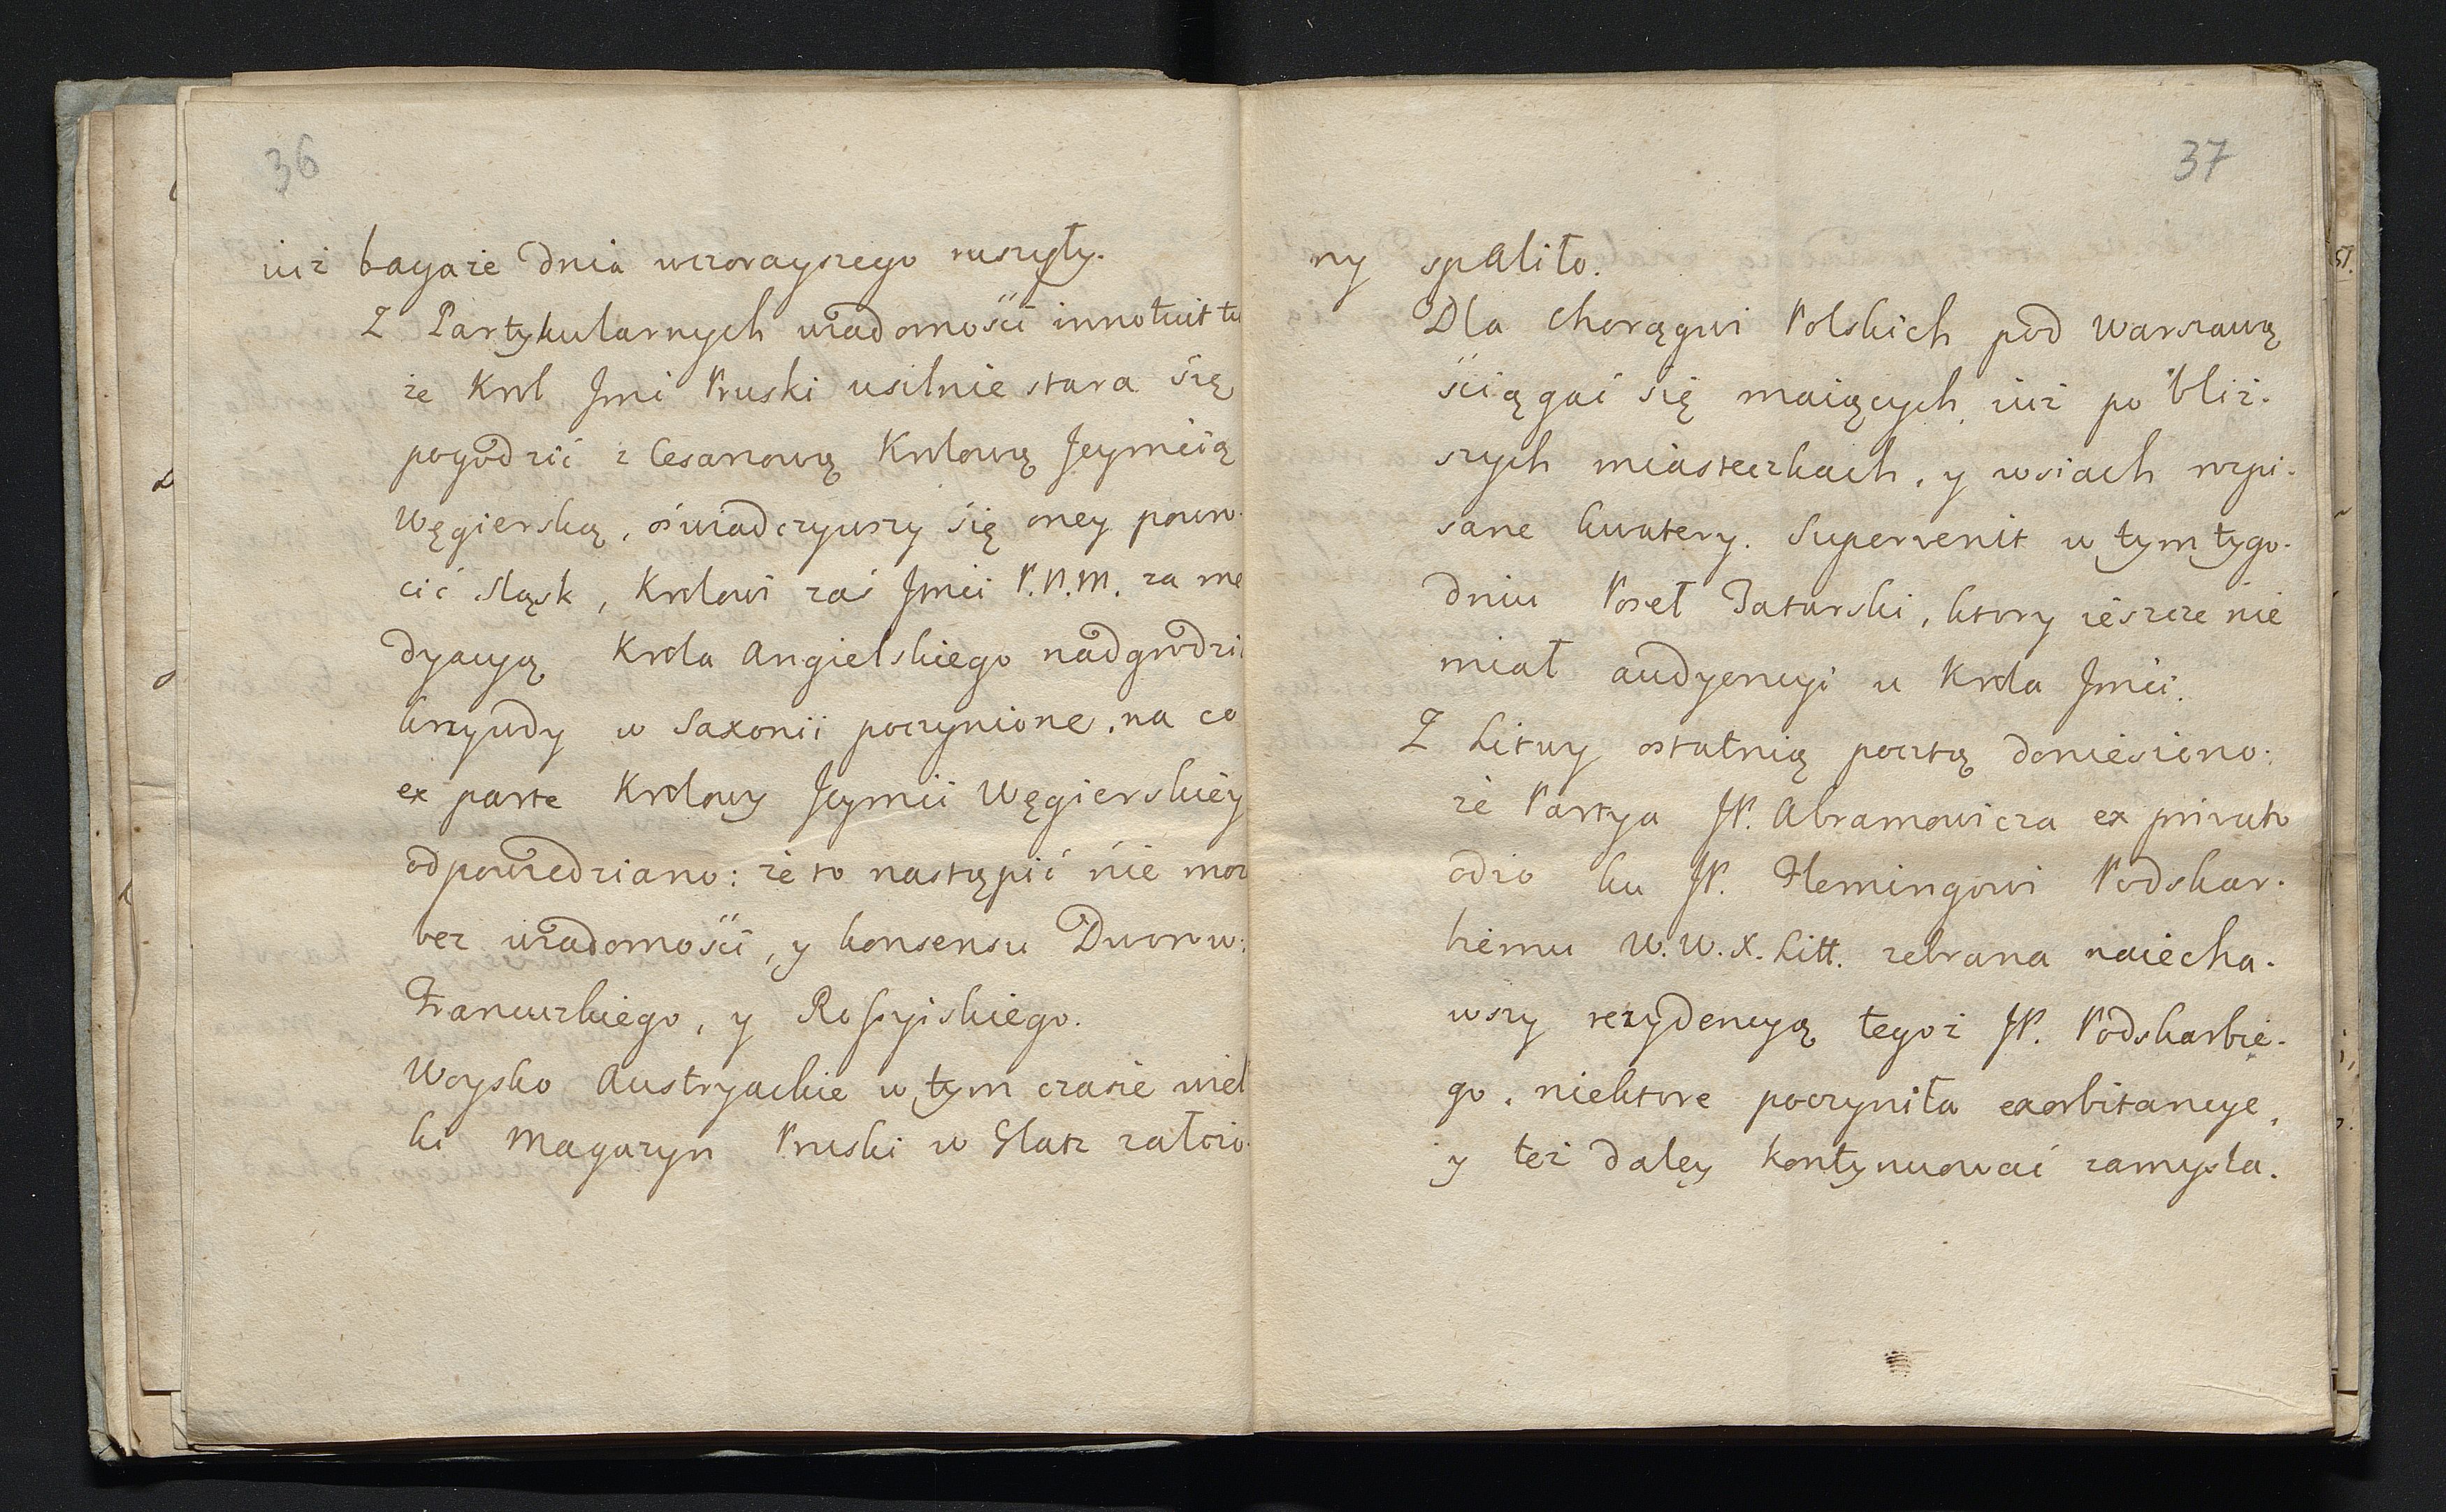 36
iuż bagaże dnia wczorayszego ruszyły.
Z Partykularnych wiadomości innotuit tu
że Krol Jmć Pruski usilnie stara się
pogodzić z Cesarzową Krolową Jeymcią
Węgierską, oświadczywszy się oney powro-
cić Sląsk, Krolowi zaś Jmci P.N.M. za me
dyacyą Krola Angielskiego nadgrodzi
krzywdy w Saxonii poczynione, na co
ex parte Krolowy Jeymci Węgierskiey
odpowiedziano: że to nastąpić nie moż
bez wiadomości, y konsensu Dworow:
Francuzkiego, y Rossyiskiego.
Woysko Austryackie w tym czasie wiel
ki Magazyn Pruski w Glatz założo-
37
ny spaliło.
Dla Chorągwi Polskich pod Warszawą
ściągać się maiących, iuż po bliż-
szych miasteczkach, y wsiach rozpi-
sane kwatery. Supervenit w tym tygo-
dniu Poseł Tatarski, ktory ieszcze nie
miał audyencyi u Krola Jmci.
Z Litwy ostatnią pocztą doniesiono:
że Partya JP. Abramowicza ex privato
odio ku JP. Flemingowi Podskar-
biemu W.W.X.Litt. zebrana naiecha-
wszy rezydencyą tegoż JP. Podskarbie-
go, niektore poczyniła exorbitancye,
y też daley kontynuować zamysla.
51.